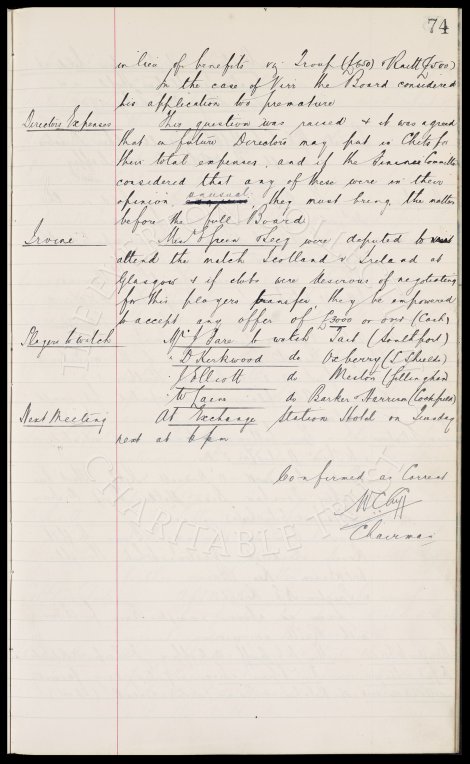 74
in lieu of benefits viz Troup (£650) & Raitt (£500)
In the case of Virr the Board considered
his application too premature
Directors Expenses This question was raised & it was agreed
that in future Directors may put in Chits for
their total expenses, and if the Finance Committee
considered that any of these were in their
opinion unusual, they must bring the matter
before the full Board
Irvine Messrs Green & were deputed to
attend the match Scotland v Ireland at
Glasgow & if clubs were desirous of negotiating
for this players transfer they be empowered
to accept any offer of £3000 or over (Cash)
Players to watch Mr J Fare to watch Tait (Southport)
" D. Kirkwood do Oxberry (S. Shields)
" J Elliott do Meston (Gillingham)
" W Cain do Barker & Harrison (Cockfield)
Next Meeting At Exchange Station Hotel on Tuesday
next at 6 pm
Confirmed as Correct
W.C. Cuff
Chairman
CHARITABLE TRUST